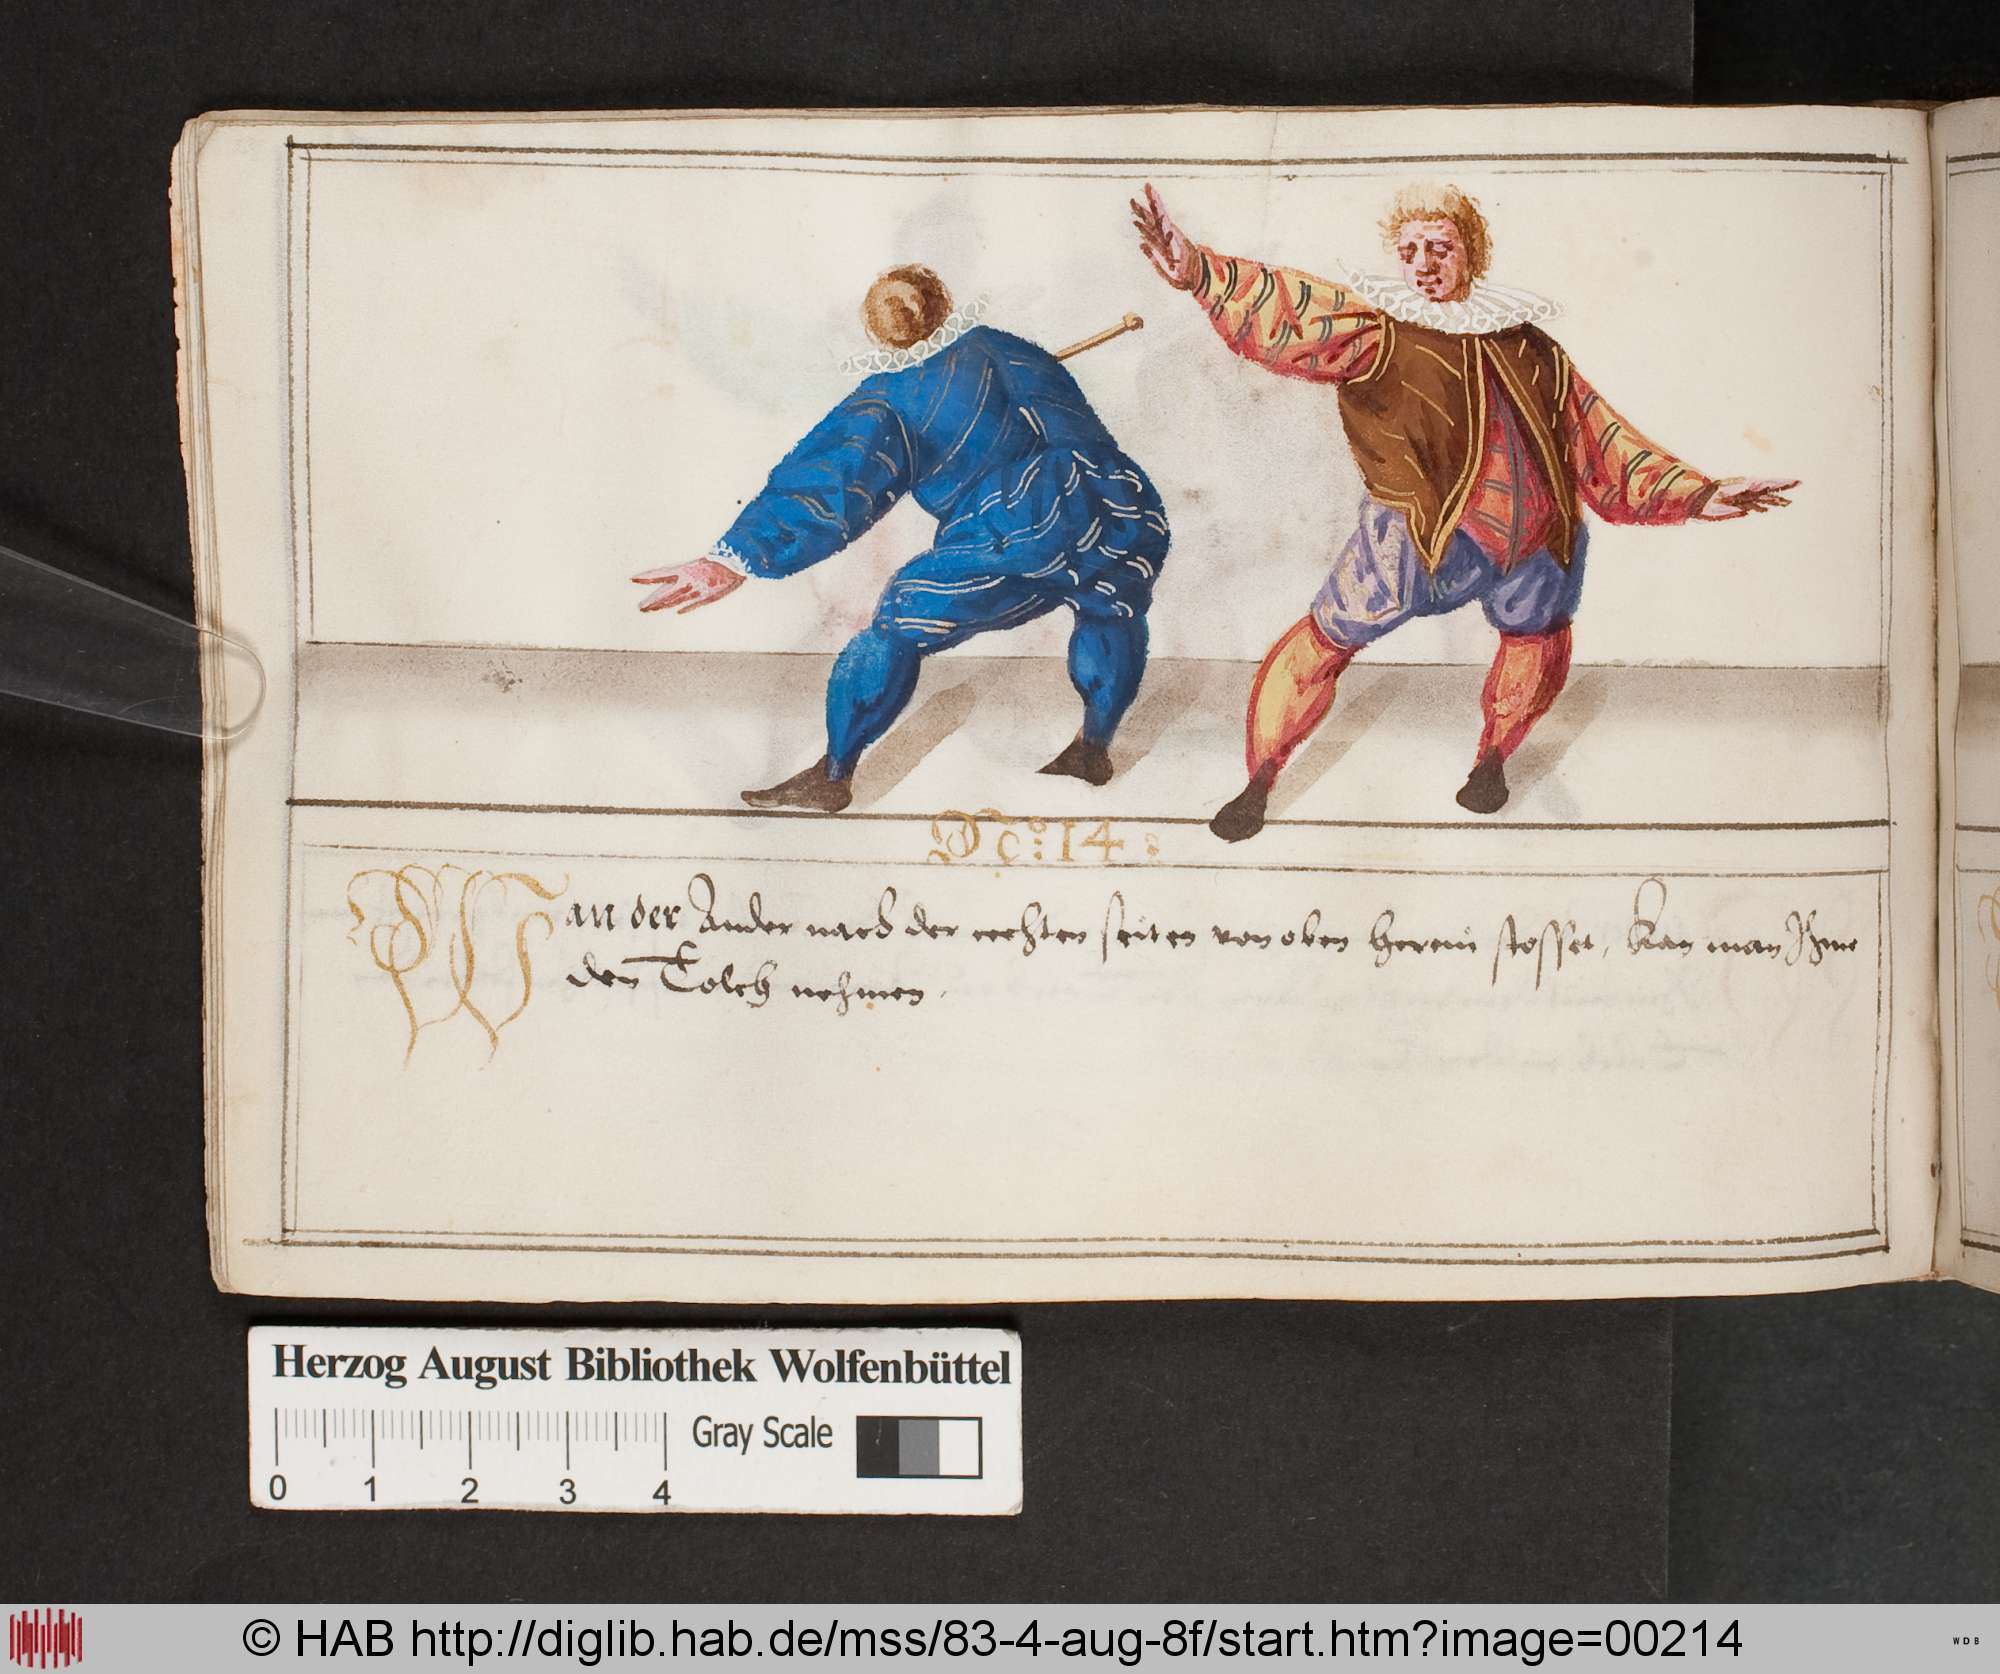 No: 14:
Wan der Ander nach der rechten seiten von oben herein stosset, kan man Ihme
den Tolch nehmen.
Herzog August Bibliothek Wolfenbüttel
Gray Scale
0 1 2 3 4
© HAB http://diglib.hab.de/mss/83-4-aug-8f/start.htm?image=00214
WDB